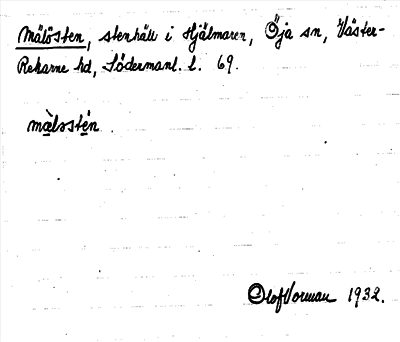 Mälösten, stenhäll i Hjälmaren, Öja sn, Väster-
Rekarne hd, Södermanl. l. 69.
mælostén.
Olof Vorman 1932.